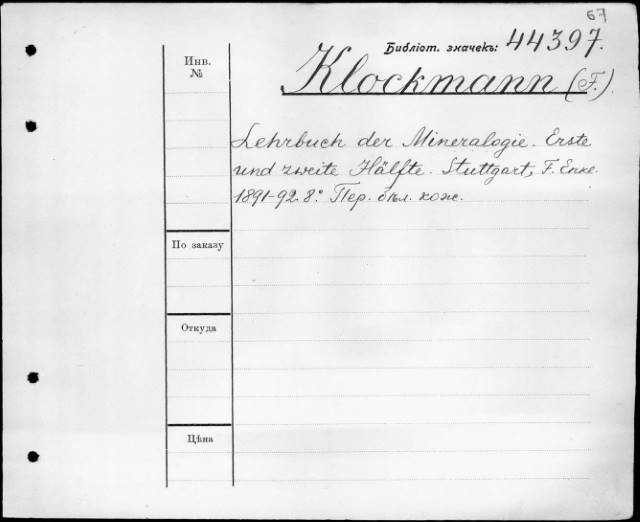 67
Библіот. значекъ: 44397.
Инв.
№
Klockmann (F.)
Lehrbuch der Mineralogie. Erste
und zweite Hälfte. Stuttgart, F. Enke.
1891-92. 8.° Пер. бѣл. кож.
По заказу
Откуда
Цѣна